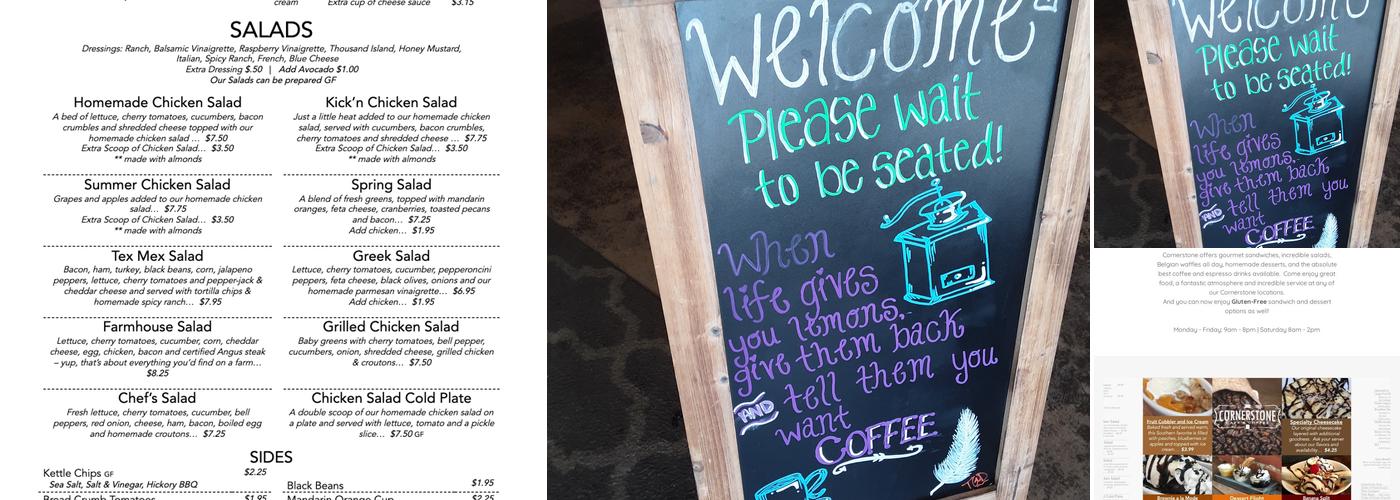 cream
Extra cup of cheese sauce $3.15
SALADS
Dressings: Ranch, Balsamic Vinaigrette, Raspberry Vinaigrette, Thousand Island, Honey Mustard,
Italian, Spicy Ranch, French, Blue Cheese
Extra Dressing $.50 | Add Avocado $1.00
Our Salads can be prepared GF
Homemade Chicken Salad
A bed of lettuce, cherry tomatoes, cucumbers, bacon
crumbles and shredded cheese topped with our
homemade chicken salad ... $7.50
Extra Scoop of Chicken Salad... $3.50
** made with almonds
Kick'n Chicken Salad
Just a little heat added to our homemade chicken
salad, served with cucumbers, bacon crumbles,
cherry tomatoes and shredded cheese ... $7.75
Extra Scoop of Chicken Salad... $3.50
** made with almonds
Summer Chicken Salad
Grapes and apples added to our homemade chicken
salad... $7.75
Extra Scoop of Chicken Salad... $3.50
** made with almonds
Spring Salad
A blend of fresh greens, topped with mandarin
oranges, feta cheese, cranberries, toasted pecans
and bacon... $7.25
Add chicken... $1.95
Tex Mex Salad
Bacon, ham, turkey, black beans, corn, jalapeno
peppers, lettuce, cherry tomatoes and pepper-jack &
cheddar cheese and served with tortilla chips &
homemade spicy ranch... $7.95
Greek Salad
Lettuce, cherry tomatoes, cucumber, pepperoncini
peppers, feta cheese, black olives, onions and our
homemade parmesan vinaigrette... $6.95
Add chicken... $1.95
Farmhouse Salad
Lettuce, cherry tomatoes, cucumber, corn, cheddar
cheese, egg, chicken, bacon and certified Angus steak
– yup, that's about everything you'd find on a farm...
$8.25
Grilled Chicken Salad
Baby greens with cherry tomatoes, bell pepper,
cucumbers, onion, shredded cheese, grilled chicken
& croutons... $7.50
Chef's Salad
Fresh lettuce, cherry tomatoes, cucumber, bell
peppers, red onion, cheese, ham, bacon, boiled egg
and homemade croutons... $7.25
Chicken Salad Cold Plate
A double scoop of our homemade chicken salad on
a plate and served with lettuce, tomato and a pickle
slice... $7.50 GF
SIDES
Kettle Chips GF $2.25
Sea Salt, Salt & Vinegar, Hickory BBQ
Bread Crumb Tomatoes $1.95
Black Beans $1.95
Mandarin Orange Cup $2.25
Welcome
Please wait
to be seated!
When
life gives
you lemons,
give them back
AND tell them you
want
COFFEE
Welcome
Please wait
to be seated!
When
life gives
you lemons,
give them back
AND tell them you
want
COFFEE
Cornerstone offers gourmet sandwiches, incredible salads,
Belgian waffles all day, homemade desserts, and the absolute
best coffee and espresso drinks available. Come enjoy great
food, a fantastic atmosphere and incredible service at any of
our Cornerstone locations.
And you can now enjoy Gluten-Free sandwich and dessert
options as well!
Monday - Friday: 9am - 8pm | Saturday 8am - 2pm
Fruit Cobbler and Ice Cream
Baked fresh and served warm,
this Southern favorite is filled
with peaches, blueberries or
apples and topped with ice
cream. $3.99
CORNERSTONE
Specialty Cheesecake
Our original cheesecake
layered with additional
goodness. Ask your server
about our flavors and
availability. $4.25
Brownie a la Mode
Dessert Flight
Banana Split